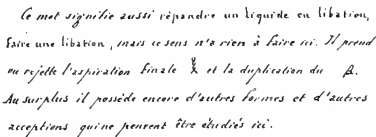 Ce mot signifie aussi répandre un liquide en libation,
faire une libation, mais ce sens n'a rien à faire ici. Il prend
ou rejette l'aspiration finale et la duplication du
Au surplus il possède encore d'autres formes et d'autres
acceptions qui ne peuvent être étudiés ici.